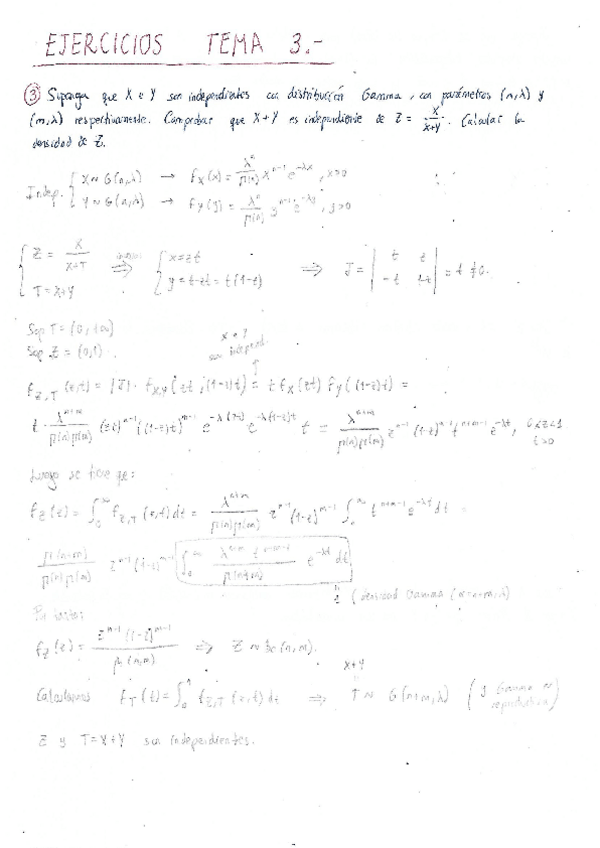 EJERCICIOS TEMA 3.-
③ Suponga que X e Y son independientes con distribución Gamma, con parámetros (n,λ) y
(m,λ) respectivamente. Comprobar que X+Y es independiente de Z = X/(X+Y). Calcular la
densidad de Z.
Indep. { X~G(n,λ) → f_X(x) = λ^n/Γ(n) x^(n-1) e^(-λx), x>0
Y~G(n,λ) → f_Y(y) = λ^n/Γ(n) y^(n-1) e^(-λy), y>0
{ Z = X/(X+Y) ⇒ { x=zt ⇒ J = | t z |
T=X+Y y=t-zt = t(1-z) | -t 1-z | = t ≠0.
Sop T = (0,+∞)
Sop Z = (0,1)
x e y
son independ.
f_Z,T(z,t) = |J| · f_X,Y(zt,(1-z)t) = t f_X(zt) f_Y((1-z)t) =
t · λ^(n+m)/Γ(n)Γ(m) (zt)^(n-1) ((1-z)t)^(m-1) e^(-λ(zt)) e^(-λ(1-z)t) t = λ^(n+m)/Γ(n)Γ(m) z^(n-1) (1-z)^(m-1) t^(n+m-1) e^(-λt), 0<z<1
t>0
Luego se tiene que:
f_Z(z) = ∫_0^∞ f_Z,T(z,t)dt = λ^(n+m)/Γ(n)Γ(m) z^(n-1) (1-z)^(m-1) ∫_0^∞ t^(n+m-1) e^(-λt) dt =
Γ(n+m)/Γ(n)Γ(m) z^(n-1) (1-z)^(m-1) ∫_0^∞ λ^(n+m) t^(n+m-1)/Γ(n+m) e^(-λt) dt
1 (densidad Gamma (α=n+m,λ)
Por tanto:
f_Z(z) = z^(n-1) (1-z)^(m-1)/β(n,m) ⇒ Z ~ be(n,m).
x+y
Calculamos f_T(t) = ∫_0^1 f_Z,T(z,t) dt ⇒ T~ G(n+m,λ) (Gamma es
reproductiva)
Z y T=X+Y son independientes.